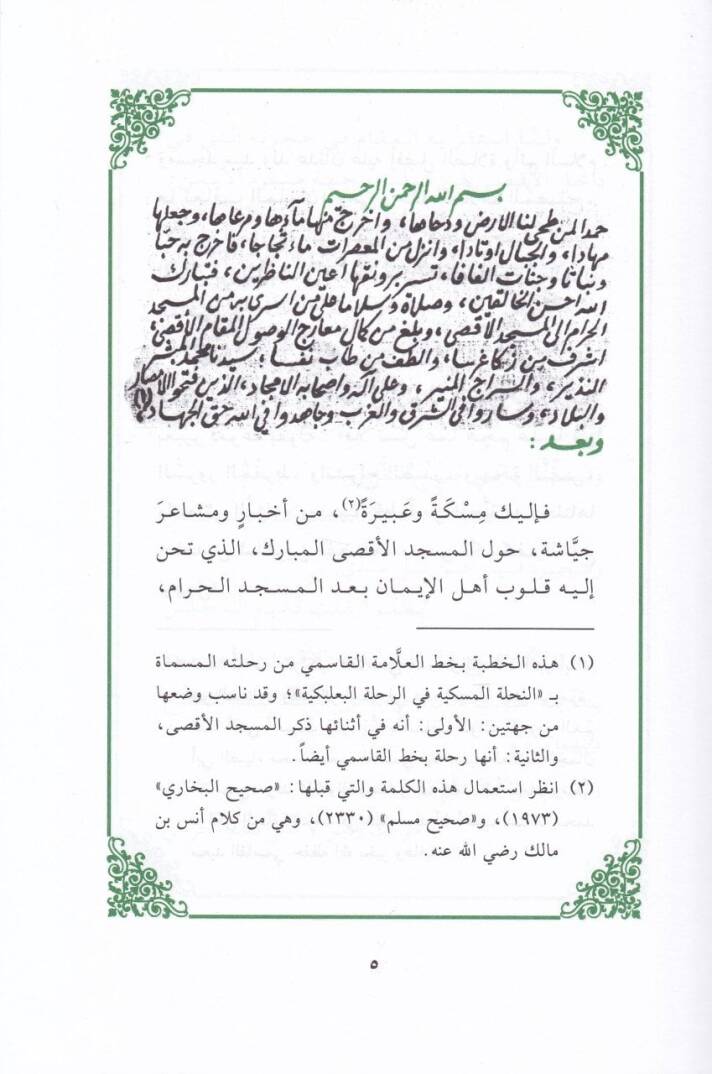 بسم الله الرحمن الرحيم
حمدا لمن طحى لنا الارض ودحاها، واخرج منها ماءها ومرعاها، وجعلها
مهادا، والجبال اوتادا، وانزل من المعصرات ماء ثجاجا، فاخرج به حبا
ونباتا وجنات الفافا، تسر برونقها اعين الناظرين، فتبارك
الله احسن الخالقين، وصلاة وسلاما على من اسري به من المسجد
الحرام الى المسجد الاقصى، وبلغ من كمال معارج الوصول المقام الاقصى،
اشرف من زكا غرسا، والطف من طاب نفسا، سيدنا محمد المبشر
النذير، والسراج المنير، وعلى آله واصحابه الامجاد، الذين فتحوا الامصار
والبلاد، وساروا في الشرق والغرب وجاهدوا في الله حق الجهاد (١)
وبعد:
فإليك مِسْكَةً وعَبيرَةً(٢)، من أخبارٍ ومشاعرَ
جيَّاشة، حول المسجد الأقصى المبارك، الذي تحن
إليه قلوب أهل الإيمان بعد المسجد الحرام،
(١) هذه الخطبة بخط العلَّامة القاسمي من رحلته المسماة
بـ «النحلة المسكية في الرحلة البعلبكية»؛ وقد ناسب وضعها
من جهتين: الأولى: أنه في أثنائها ذكر المسجد الأقصى،
والثانية: أنها رحلة بخط القاسمي أيضاً.
(٢) انظر استعمال هذه الكلمة والتي قبلها: «صحيح البخاري»
(١٩٧٣)، و«صحيح مسلم» (٢٣٣٠)، وهي من كلام أنس بن
مالك رضي الله عنه.
٥